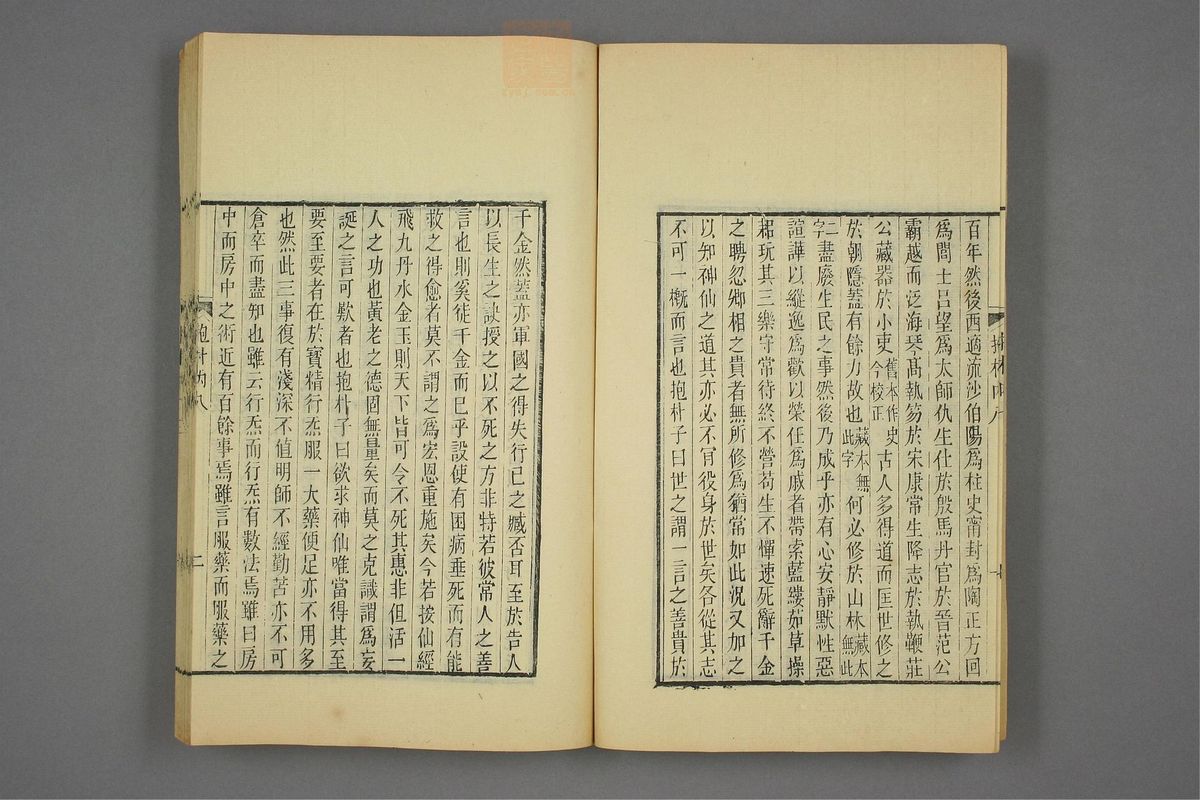 百年然後西適流沙伯陽爲柱史甯封爲陶正方回
爲閭士呂望爲太師仇生仕於殷馬丹官於晉范公
霸越而泛海琴高執笏於宋康常生降志於執鞭莊
公藏器於小吏舊本作史今校正古人多得道而匡世修之
於朝隱蓋有餘力故也藏本無此字何必修於山林藏本無此
二字盡廢生民之事然後乃成乎亦有心安靜默性惡
諠譁以縱逸爲歡以榮任爲戚者帶索藍縷茹草操
耜玩其三樂守常待終不營苟生不憚速死辭千金
之聘忽卿相之貴者無所修爲猶常如此況又加之
以知神仙之道其亦必不肎役身於世矣各從其志
不可一概而言也抱朴子曰世之謂一言之善貴於
千金然蓋亦軍國之得失行己之臧否耳至於告人
以長生之訣授之以不死之方非特若彼常人之善
言也則奚徒千金而已乎設使有困病垂死而有能
救之得愈者莫不謂之爲宏恩重施矣今若按仙經
飛九丹水金玉則天下皆可令不死其惠非但活一
人之功也黃老之德固無量矣而莫之克識謂爲妄
誕之言可歎者也抱朴子曰欲求神仙唯當得其至
要至要者在於寶精行炁服一大藥便足亦不用多
也然此三事復有淺深不值明師不經勤苦亦不可
倉卒而盡知也雖云行炁而行炁有數法焉雖曰房
中而房中之術近有百餘事焉雖言服藥而服藥之
抱朴內八
二